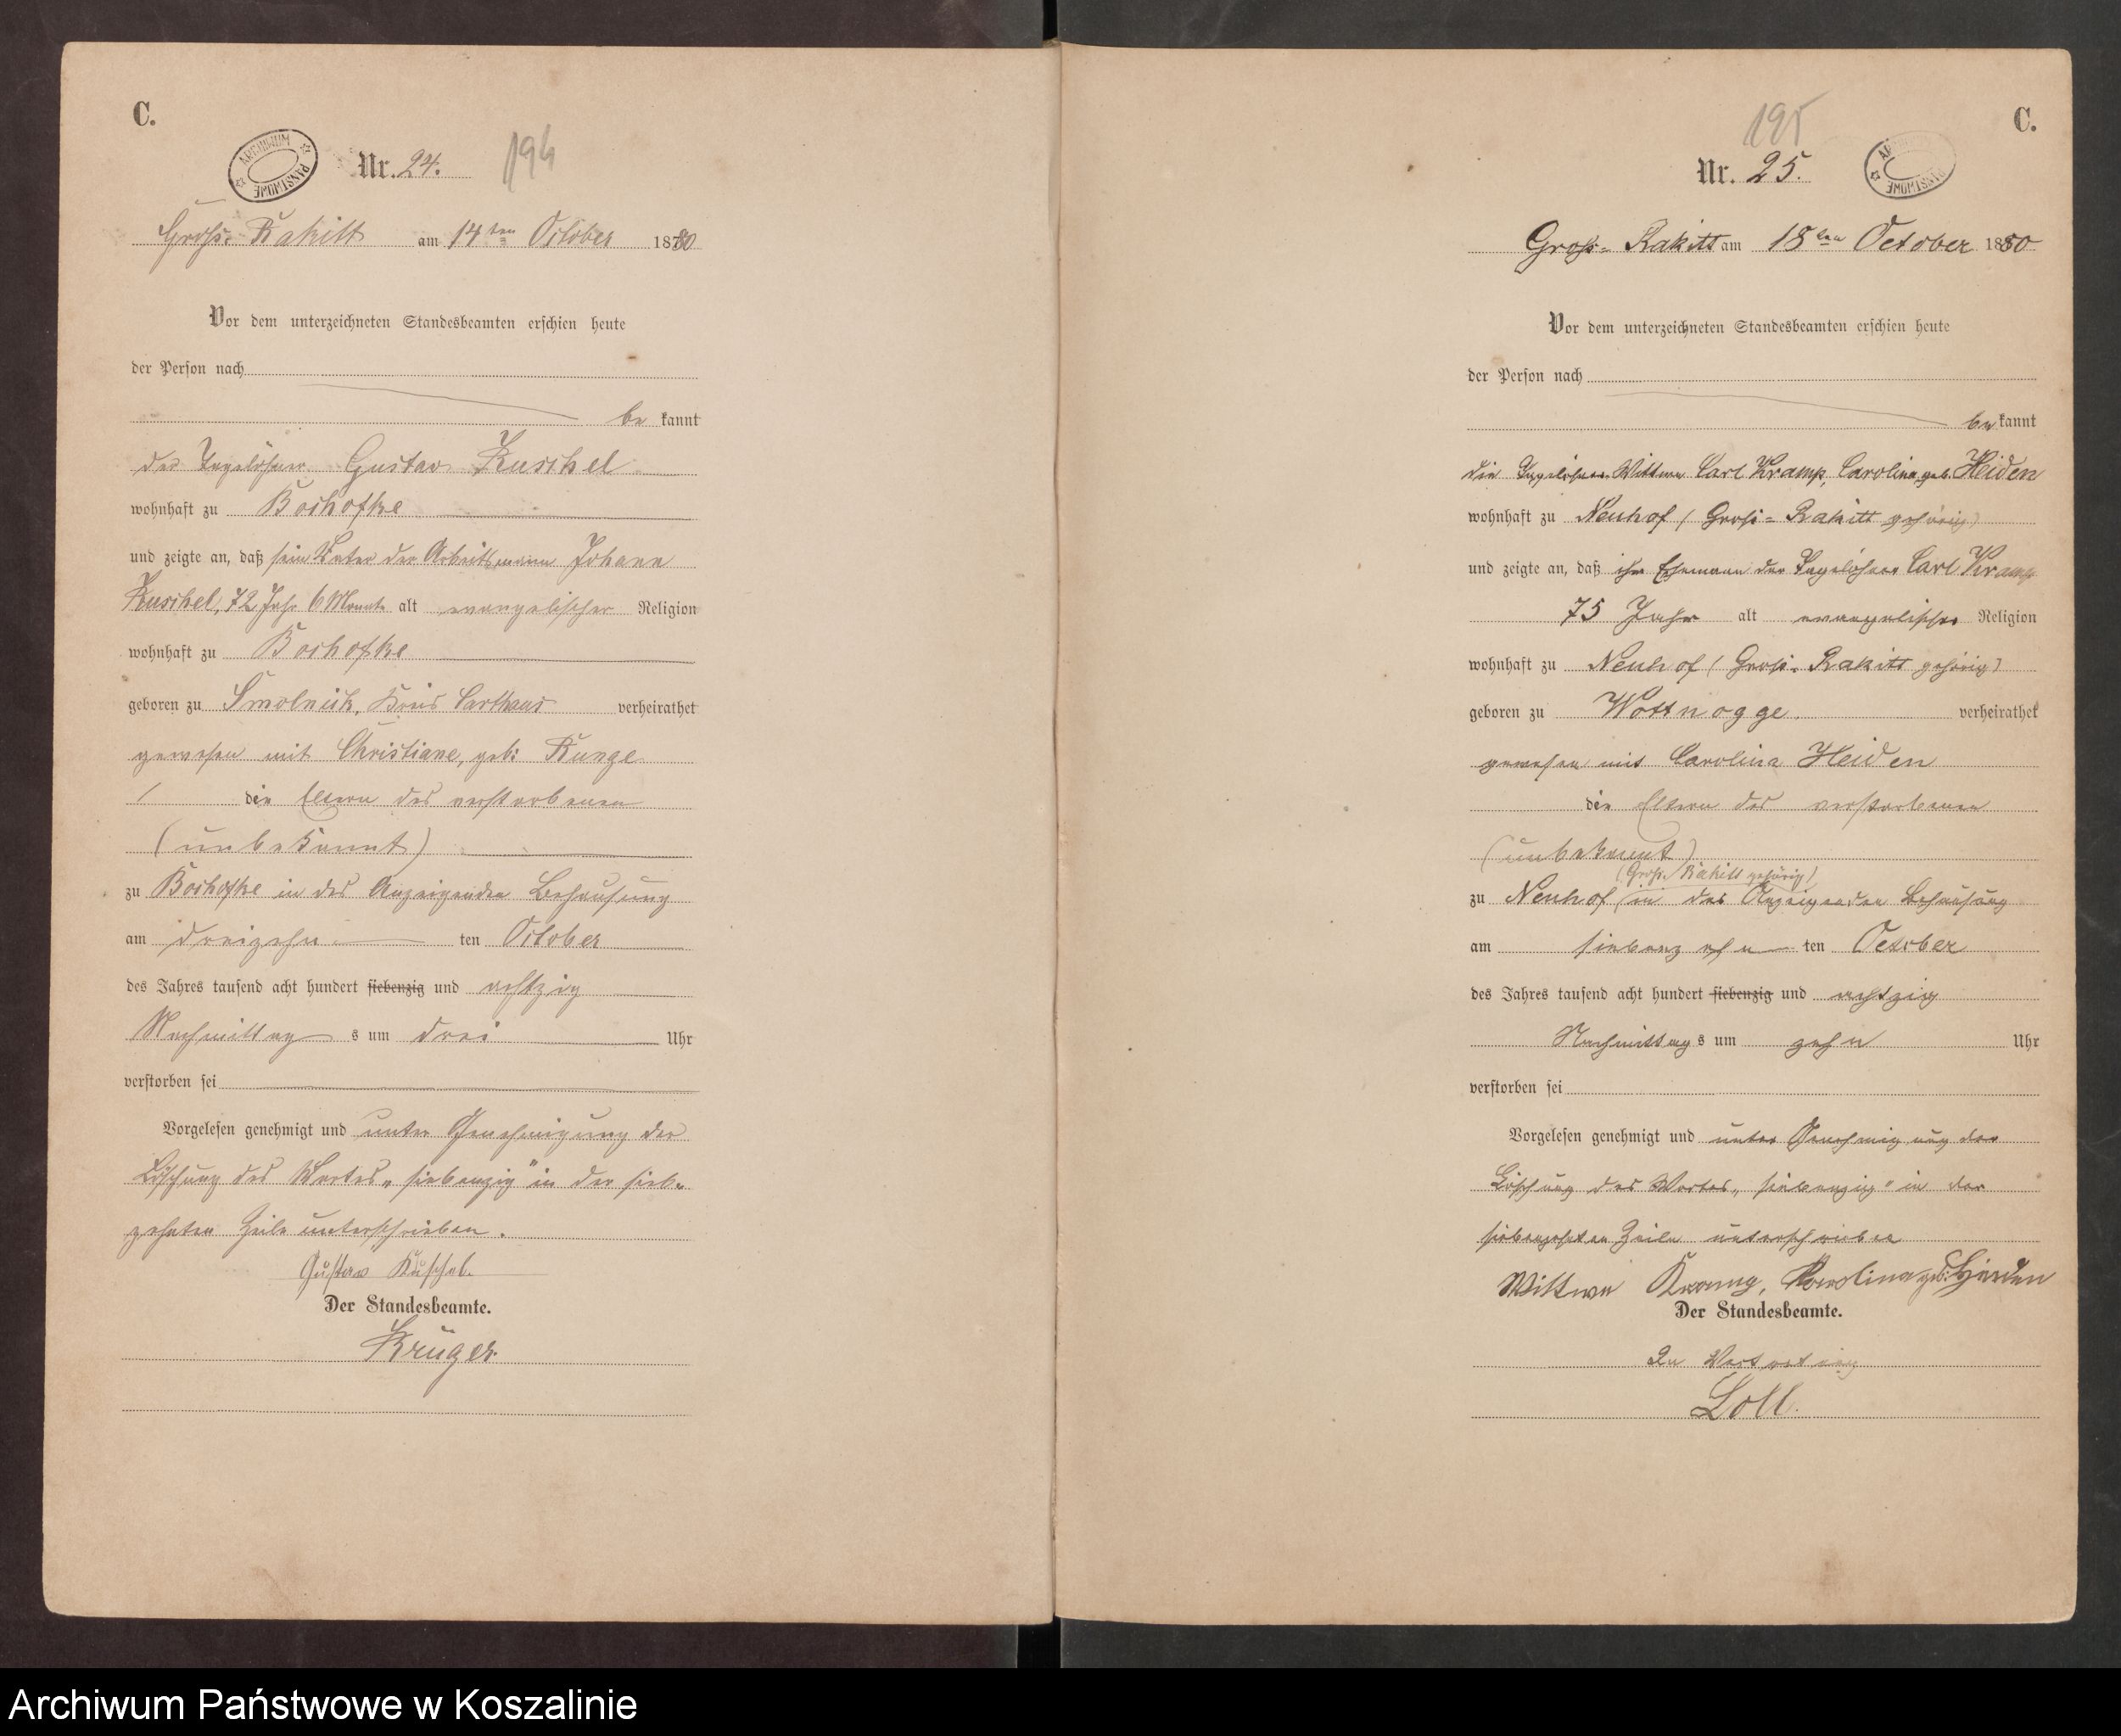 C.
ARCHIWUM PAŃSTWOWE
194
Nr. 24.
Groß-Rakitt am 14ten October 1880
Vor dem unterzeichneten Standesbeamten erschien heute
der Person nach
be kannt
der Tagelöhner Gustav Kuschel
wohnhaft zu Bochofke
und zeigte an, daß sein Vater der Arbeitsmann Johann
Kuschel, 72 Jahr 6 Monate alt evangelischer Religion
wohnhaft zu Bochofke
geboren zu Smolnick, Kreis Carthaus verheirathet
gewesen mit Christiane, geb: Runge
die Eltern des verstorbenen
(unbekannt)
zu Bochofke in des Anzeigenden Behausung
am dreizehn ten October
des Jahres tausend acht hundert siebenzig und achtzig
Nachmittag s um drei Uhr
verstorben sei
Vorgelesen genehmigt und unter Genehmigung der
Löschung des Wortes „siebenzig" in der sieb-
zehnten Zeile unterschrieben.
Gustav Kuschel.
Der Standesbeamte.
Krüger.
C.
195
Nr. 25.
ARCHIWUM PAŃSTWOWE
Groß-Rakitt am 18ten October 1880
Vor dem unterzeichneten Standesbeamten erschien heute
der Person nach
be kannt
die Tagelöhner Wittwe Carl Kramp, Carolina geb. Heiden
wohnhaft zu Neuhof (Groß-Rakitt gehörig)
und zeigte an, daß ihr Ehemann der Tagelöhner Carl Kramp
75 Jahr alt evangelischer Religion
wohnhaft zu Neuhof (Groß-Rakitt gehörig)
geboren zu Wottnogge. verheirathet
gewesen mit Carolina Heiden
die Eltern des verstorbenen
(unbekannt)
(Groß-Rakitt gehörig)
zu Neuhof in des Anzeigenden Behausung
am siebenzehn ten October
des Jahres tausend acht hundert siebenzig und achtzig
Nachmittag s um zehn Uhr
verstorben sei
Vorgelesen genehmigt und unter Genehmigung der
Löschung des Wortes „siebenzig" in der
siebenzehnten Zeile unterschrieben
Wittwe Kramp, Karolina geb: Heiden
Der Standesbeamte.
In Vertretung
Loll.
Archiwum Państwowe w Koszalinie